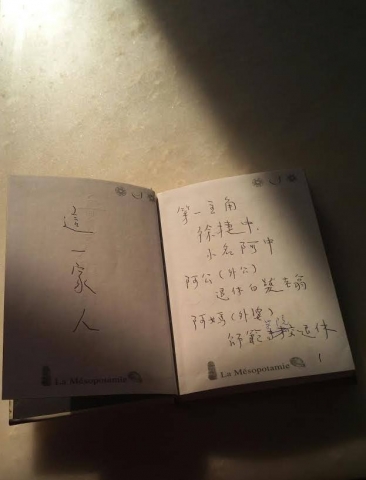 這一家人
La Mésopotamie
第一主角
徐捷中
小名阿中
阿公(外公)
退休白髮老翁
阿媽(外婆)
師範 退休
1
La Mésopotamie